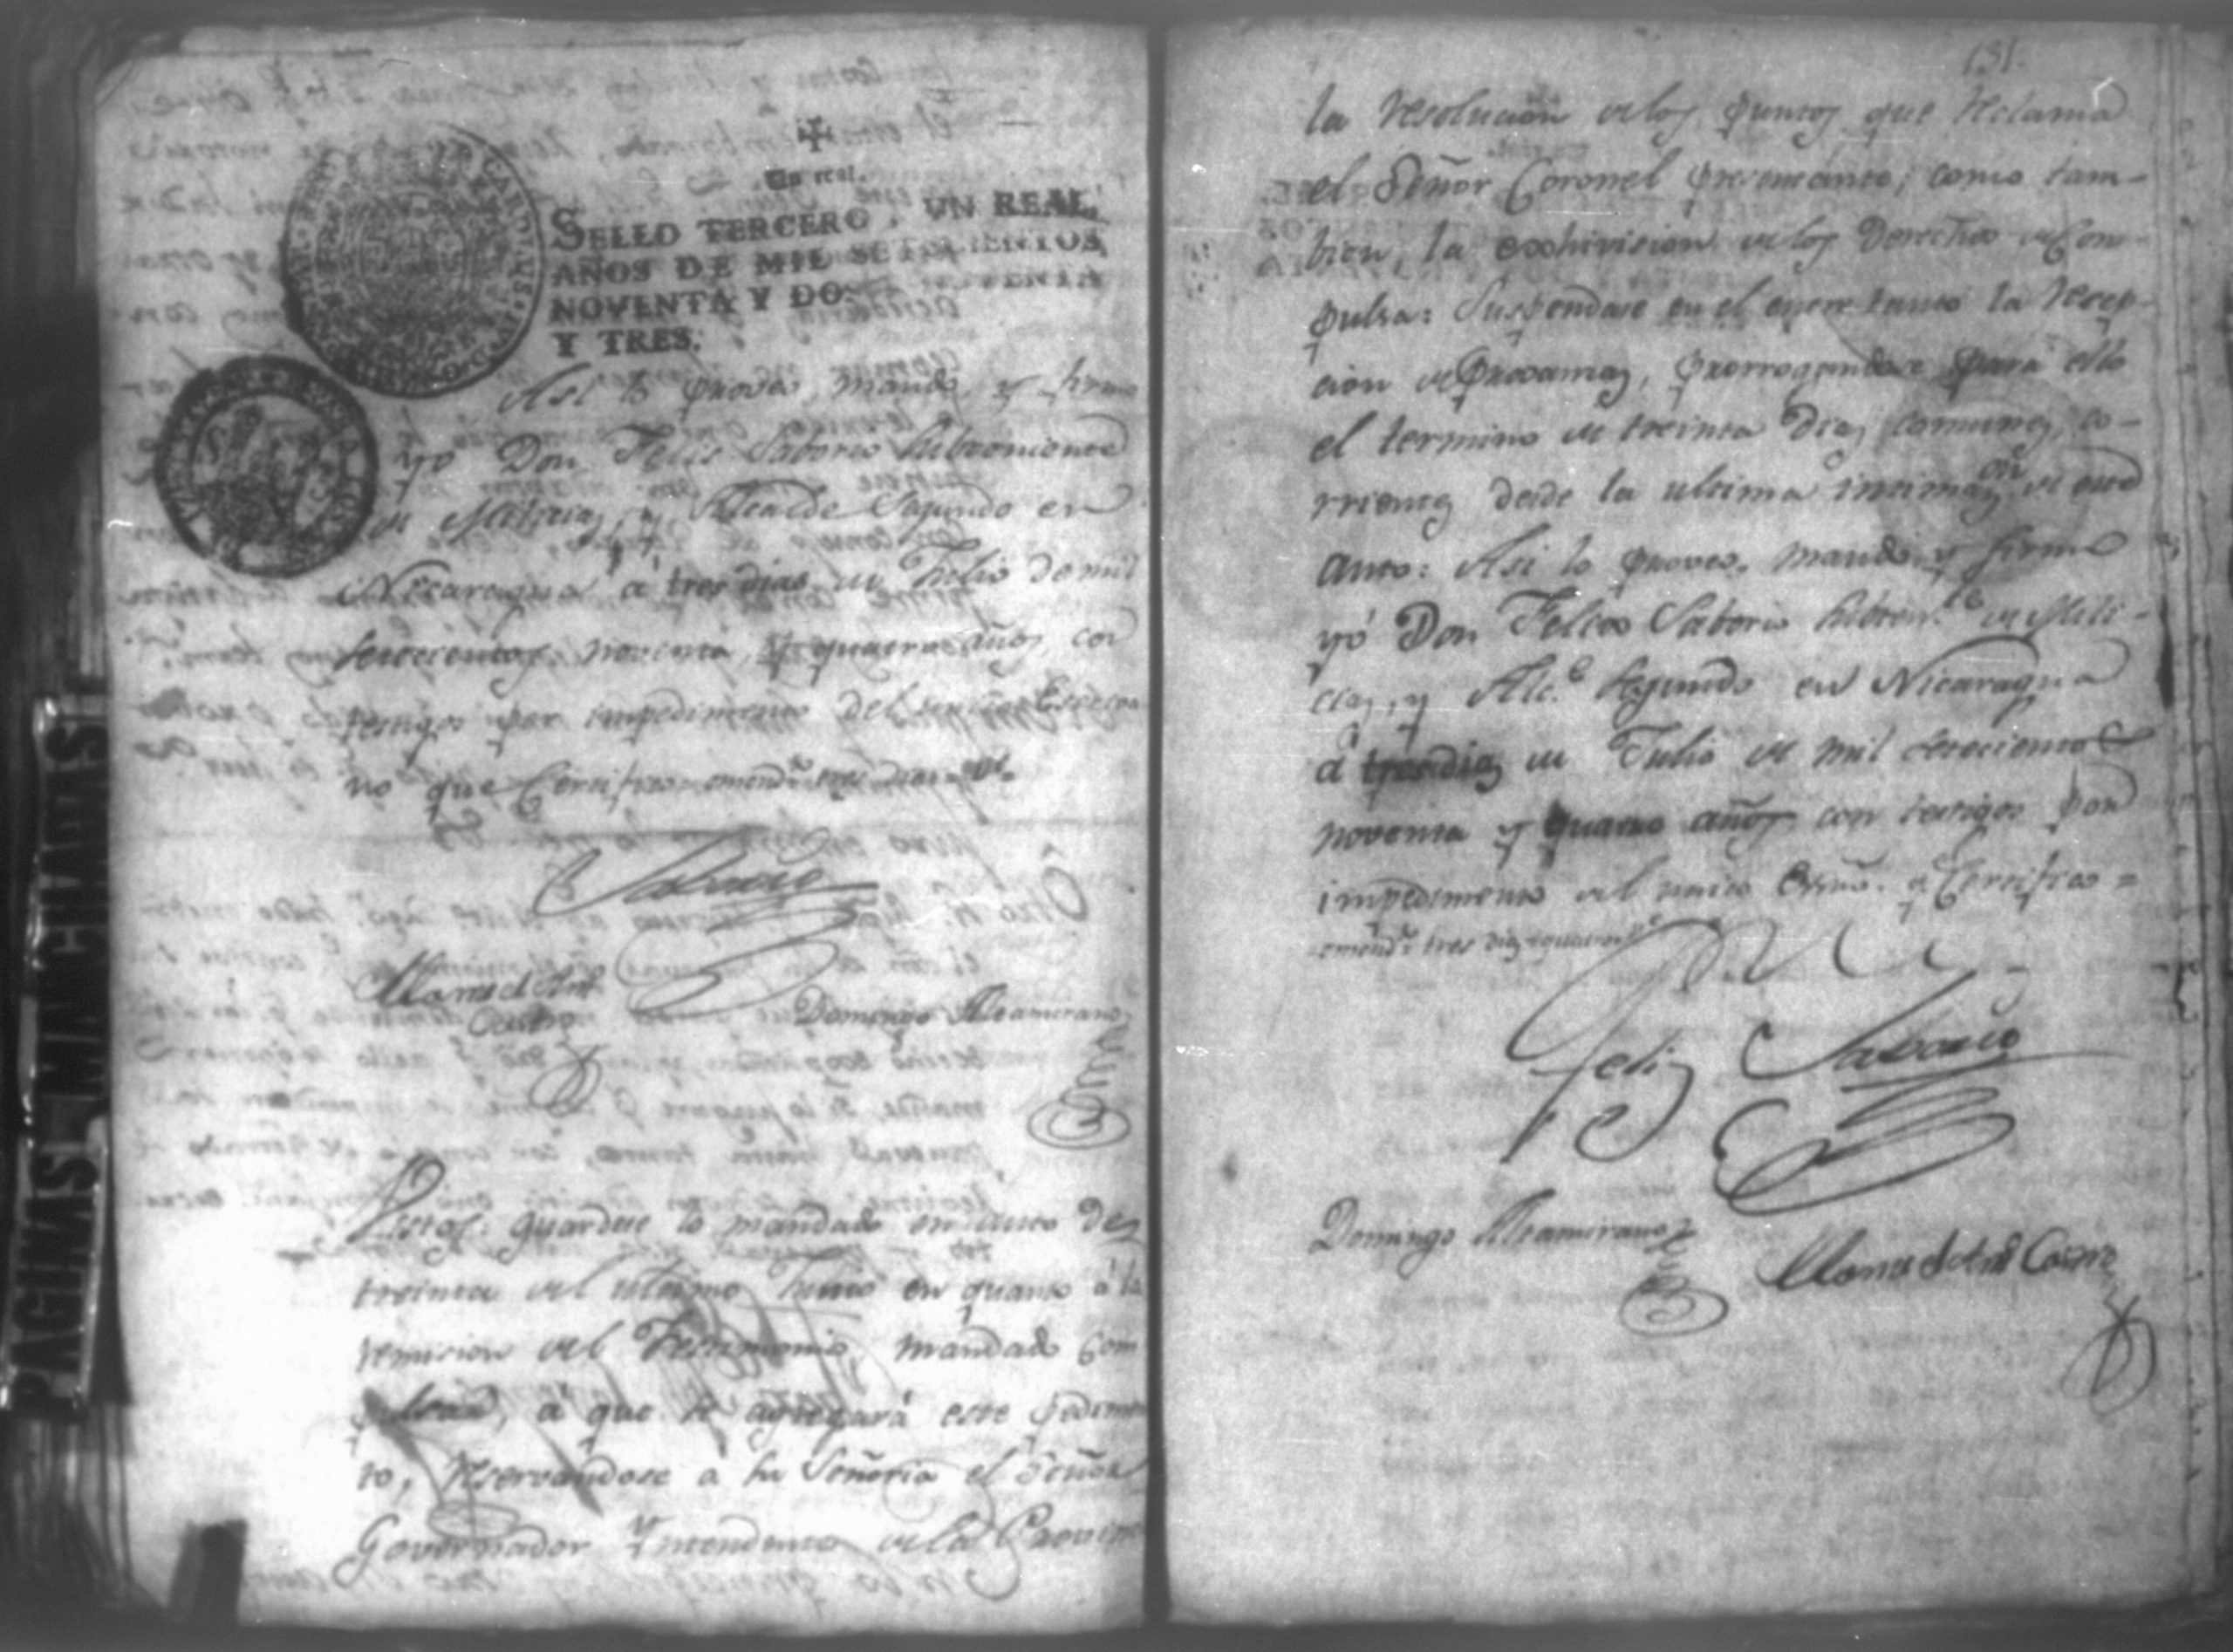 Un real.
SELLO TERCERO, UN REAL,
AÑOS DE MIL SETECIENTOS
NOVENTA Y DOS, Y NOVENTA
Y TRES.
Asi lo proveo, mando, y firmo
yó Don Felis Saborio Subteniente
de Milicias, y Alcalde Segundo en
Nicaragua á tres dias de Julio de mil
setecientos noventa, y quatro años, con
testigos por impedimento del unico Escriva
no que Certifico = emendo. tres dias = vle.
Saborio
Manuel Ant.
Castro
Domingo Altamirano
Vistos: guardese lo mandado en auto de
treinta del ultimo Junio en quanto á la
remicion del Testimonio, mandado com
pulsar, á que se agregará este pedimen
to, reservandose á su Señoria el Señor
Governador Yntendente de la Provin
131.
la resolucion de los puntos que reclama
el Señor Coronel presentante, como tam-
bien, la exhivision de los Derechos de Com-
pulsa: Suspendase en el entre tanto la recep-
cion de Provanzas, prorrogandose para ello
el termino de treinta Dias comunes, co-
rrientes desde la ultima intimaon. de este
auto: Asi lo proveo, mando, y firmo
yó Don Felis Saborio Subten.te de Mili-
cias, y Alc.e Segundo en Nicaragua
á tres dias de Julio de mil setecientos
noventa y quatro años con testigos por
impedimento del unico Essno. q. Certifico =
emendo. tres dias = quatro = vle.
Felis Saborio
Domingo Altamirano
Manuel Ant. Castro
PAGINAS MANCHADAS